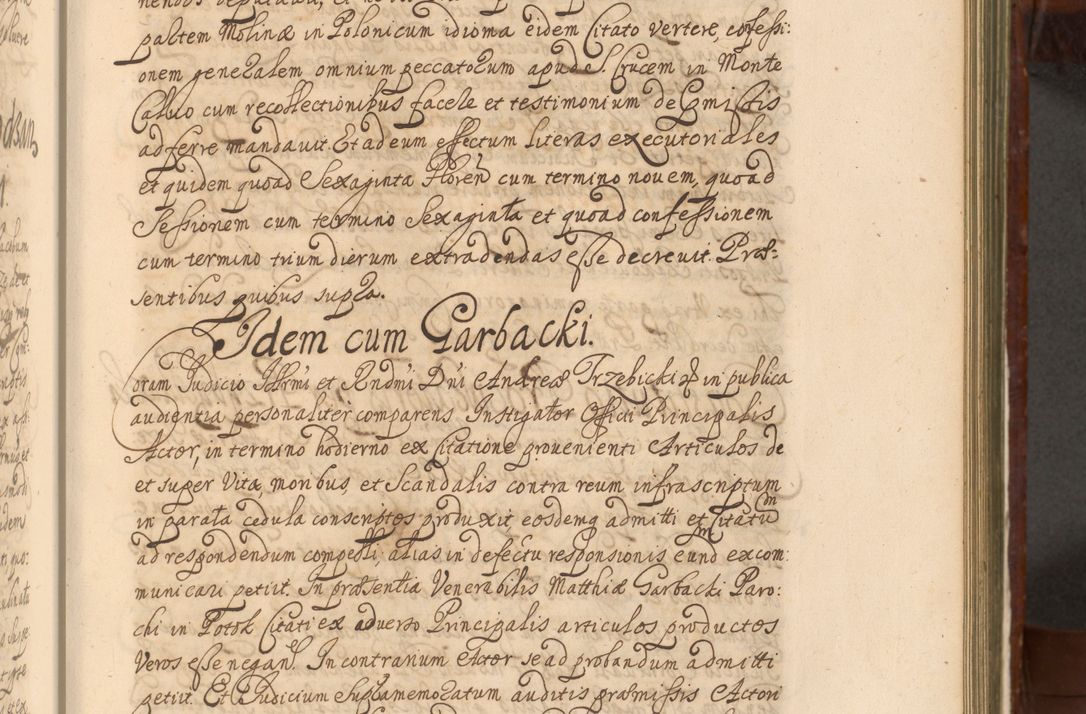 partem Molinæ in Polonicum idioma eidem Citato vertere, confessi:
onem generalem omnium peccatorum apud S. Crucem in Monte
Calvo cum recollectionibus facere et testimonium de Emissis
adferre mandavit. Et ad eum effectum literas executoriales
et quidem quoad Sexaginta Floren cum termino novem, quoad
Sessionem cum termino Sexaginta et quoad confessionem
cum termino trium dierum extradendas esse decrevit. Præ:
sentibus quibus supra.
Idem cum Garbacki.
Coram Judicio Illrmi et Rndmi Dni Andreæ Trzebicki in publica
audientia personaliter comparens Instigator Officii Principalis
Actor, in termino hodierno ex Citatione provenienti Articulos de
et super Vita, moribus, et Scandalis contra reum infrascriptum
in parata cedula conscriptos produxit, eosdemq admitti et Citatum
ad respondendum compelli, alias in defectu responsionis eund excom:
municari petiit. In præsentia Venerabilis Matthiæ Garbacki Paro:
chi in Potok Citati ex adverso Principalis articulos productos
Veros esse negan. In contrarium Actor se ad probandum admitti
petiit. Et Judicium Supramemoratum auditis præmissis Actori